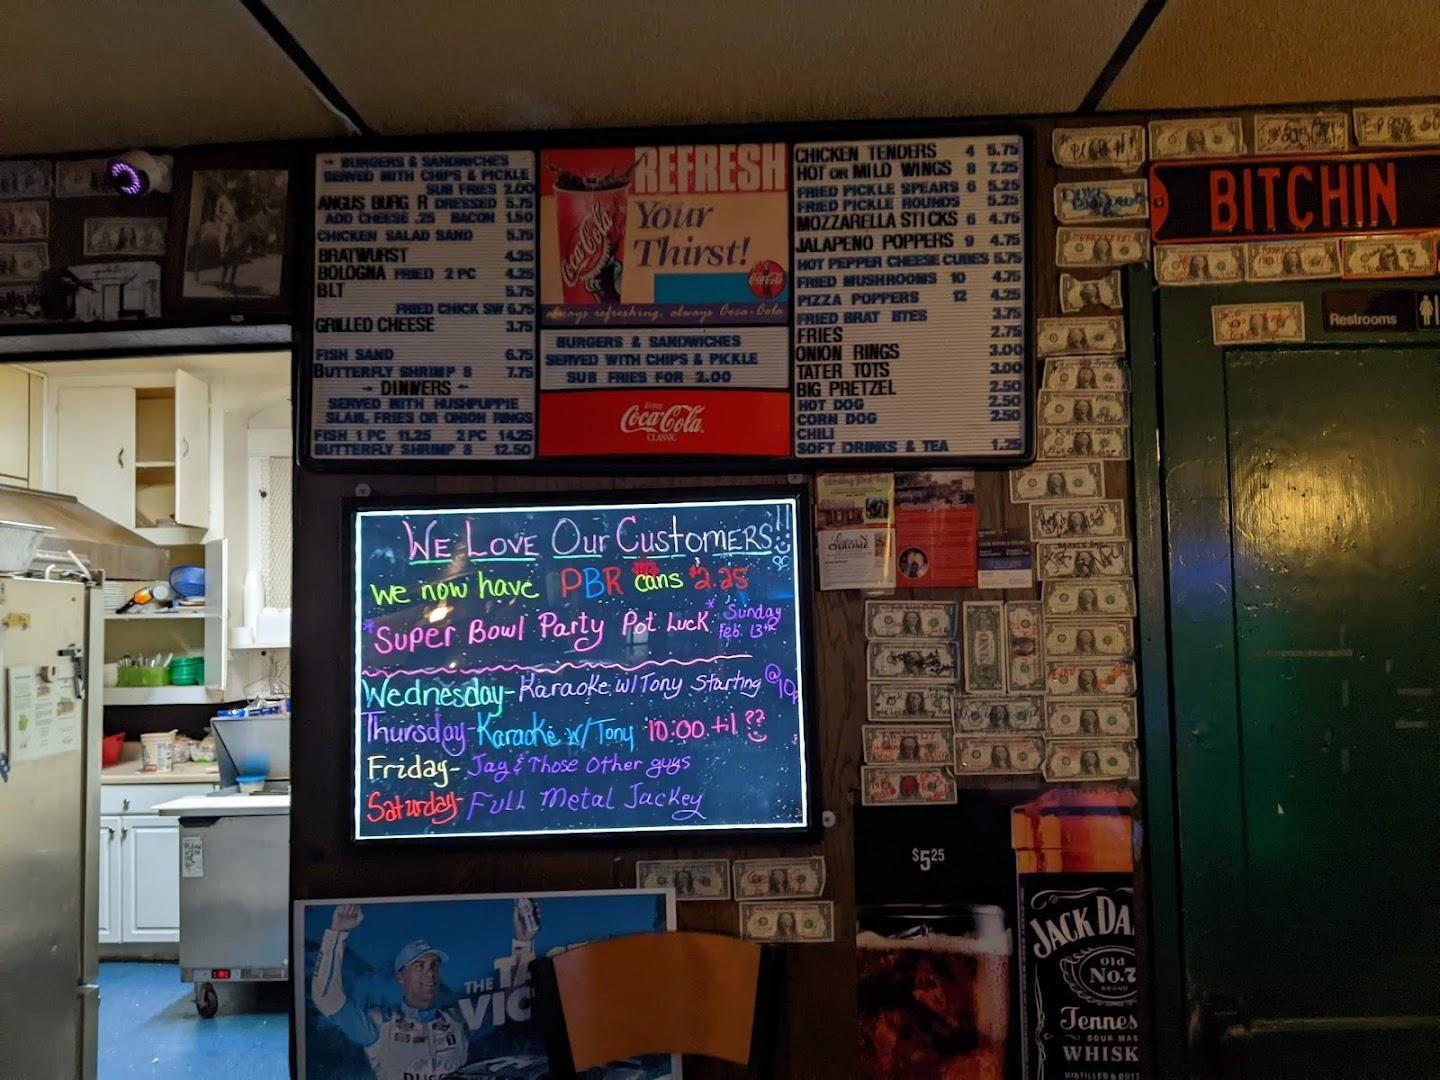 BURGERS & SANDWICHES
SERVED WITH CHIPS & PICKLE
SUB FRIES 2.00
ANGUS BURG R DRESSED 5.75
ADD CHEESE .25 BACON 1.50
CHICKEN SALAD SAND 5.75
BRATWURST 4.25
BOLOGNA FRIED 2 PC 4.25
BLT 5.75
FRIED CHICK SW 6.75
GRILLED CHEESE 3.75
FISH SAND 6.75
BUTTERFLY SHRIMP 8 7.75
DINNERS
SERVED WITH HUSHPUPPIE
SLAW, FRIES OR ONION RINGS
FISH 1 PC 11.25 2 PC 14.25
BUTTERFLY SHRIMP 8 12.50
REFRESH
Your
Thirst!
Coca-Cola
always refreshing, always Coca-Cola
BURGERS & SANDWICHES
SERVED WITH CHIPS & PICKLE
SUB FRIES FOR 2.00
Enjoy
Coca-Cola
CLASSIC
CHICKEN TENDERS 4 5.75
HOT OR MILD WINGS 8 7.25
FRIED PICKLE SPEARS 6 5.25
FRIED PICKLE ROUNDS 5.25
MOZZARELLA STICKS 6 4.75
JALAPENO POPPERS 9 4.75
HOT PEPPER CHEESE CUBES 5.75
FRIED MUSHROOMS 10 4.75
PIZZA POPPERS 12 4.25
FRIED BRAT BTES 3.75
FRIES 2.75
ONION RINGS 3.00
TATER TOTS 3.00
BIG PRETZEL 2.50
HOT DOG 2.50
CORN DOG 2.50
CHILI
SOFT DRINKS & TEA 1.25
BITCHIN
Restrooms
WE LOVE OUR CUSTOMERS!!
we now have PBR cans $2.25
*Super Bowl Party Pot Luck* Sunday
Feb. 13th
Wednesday- Karaoke w/ Tony Starting @ 10p
Thursday- Karaoke w/ Tony 10:00 til ??
Friday- Jay & Those Other guys
Saturday- Full Metal Jackey
CHROME
THE TA
VIC
$5.25
JACK DA
Old
No.7
BRAND
Tennes
SOUR MAS
WHISK